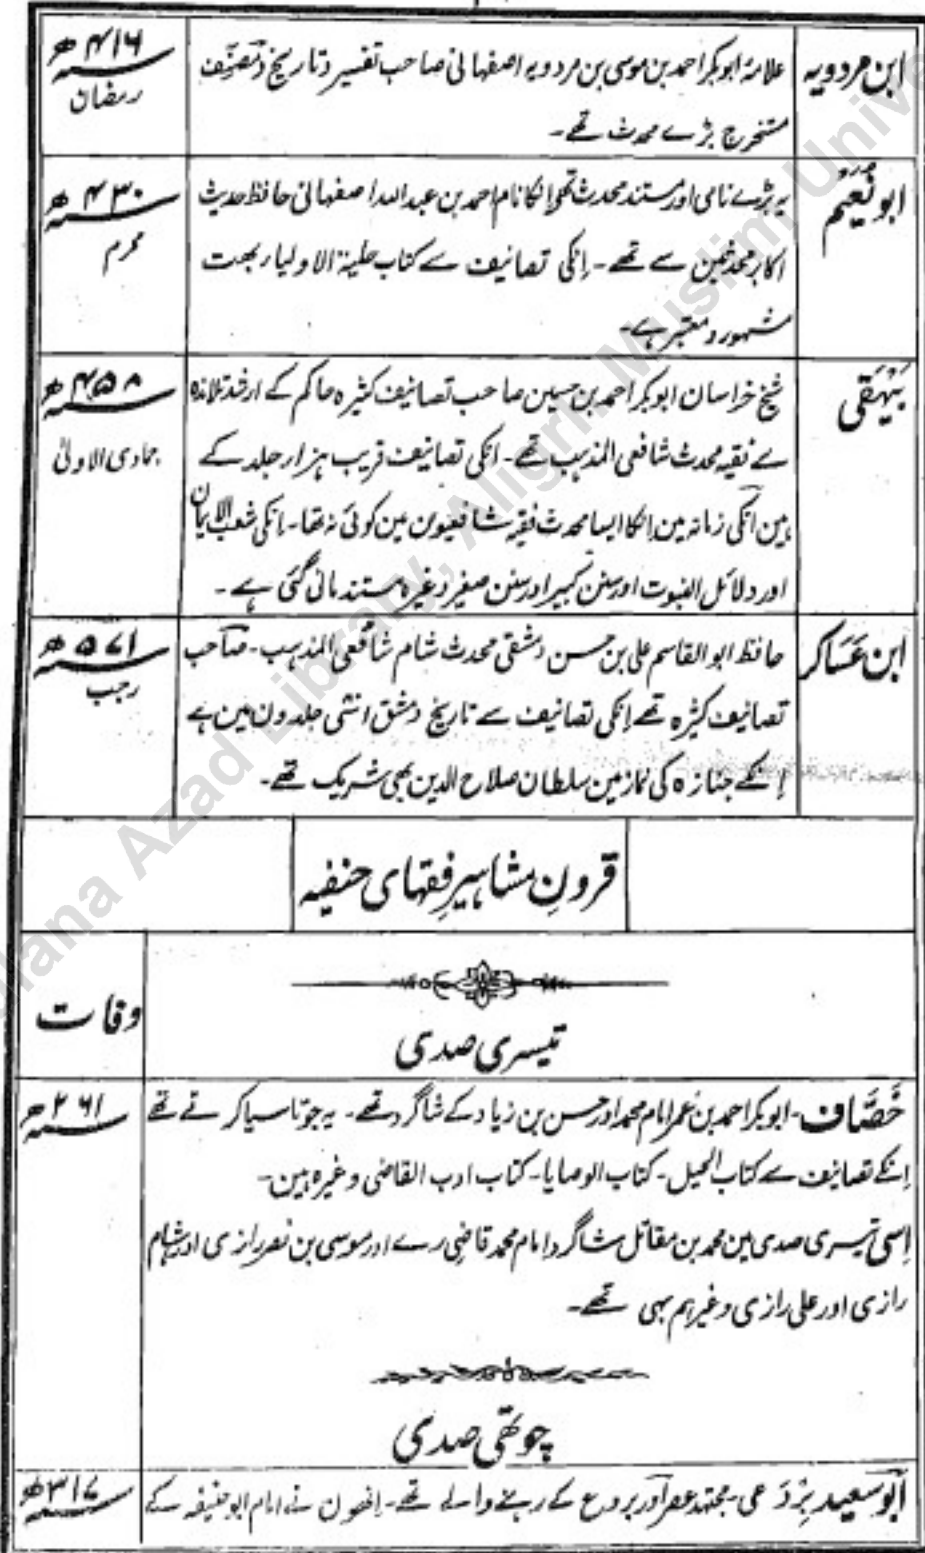 ابن مردویہ
علامہ ابوبکر احمد بن موسی بن مردویہ اصفہانی صاحب تفسیر و تاریخ و مصنف
مستخرج بڑے محدث تھے۔
۴۱۶ھ
رمضان
ابو نُعَیم
یہ بڑے نامی اور مستند محدث تھے انکا نام احمد بن عبداللہ اصفہانی حافظ حدیث
اکابر محدثین سے تھے۔ اِنکی تصانیف سے کتاب حلیۃ الاولیاء بہت
مشہور و معتبر ہے۔
۴۳۰ھ
محرم
بَیْہَقی
شیخ خراسان ابوبکر احمد بن حسین صاحب تصانیف کثیرہ حاکم کے ارشد تلامذہ
سے فقیہ محدث شافعی المذہب تھے۔ انکی تصانیف قریب ہزار جلد کے
ہین اُنکی زمانہ مین اِنکا ایسا محدث فقیہ شافعیون مین کوئی نہ تھا۔ اِنکی شعب الایمان
اور دلائل النبوت اور سنن کبیر اور سنن صغیر وغیرہ مستند مانی گئی ہے۔
۴۵۸ھ
جمادی الاولیٰ
ابن عَسَاکر
حافظ ابوالقاسم علی بن حسن دمشقی محدث شام شافعی المذہب۔ صاحب
تصانیف کثیرہ تھے اِنکی تصانیف سے تاریخ دمشق اسّی جلدون مین ہے
اِنکے جنازہ کی نماز مین سلطان صلاح الدین بھی شریک تھے۔
۵۷۱ھ
رجب
قرونِ مشاہیرِ فقہای حنفیہ
وفات
تیسری صدی
خَصَّاف۔ ابوبکر احمد بن عُمر امام محمد اور حسن بن زیاد کے شاگرد تھے۔ یہ جوتا سیا کرتے تھے
اِنکے تصانیف سے کتاب الحیل۔ کتاب الوصایا۔ کتاب ادب القاضی وغیرہ ہین۔
اِسی تیسری صدی مین محمد بن مقاتل شاگرد امام محمد قاضی رے اور موسی بن نصر رازی اور ہشام
رازی اور علی رازی وغیرہم بہی تھے۔
۲۶۱ھ
چوتھی صدی
ابو سعید بِرْدَعی۔ مجتہد عصر اور بردع کے رہنے والے تھے۔ اِنھون نے امام ابوحنیفہ کے
۳۱۷ھ